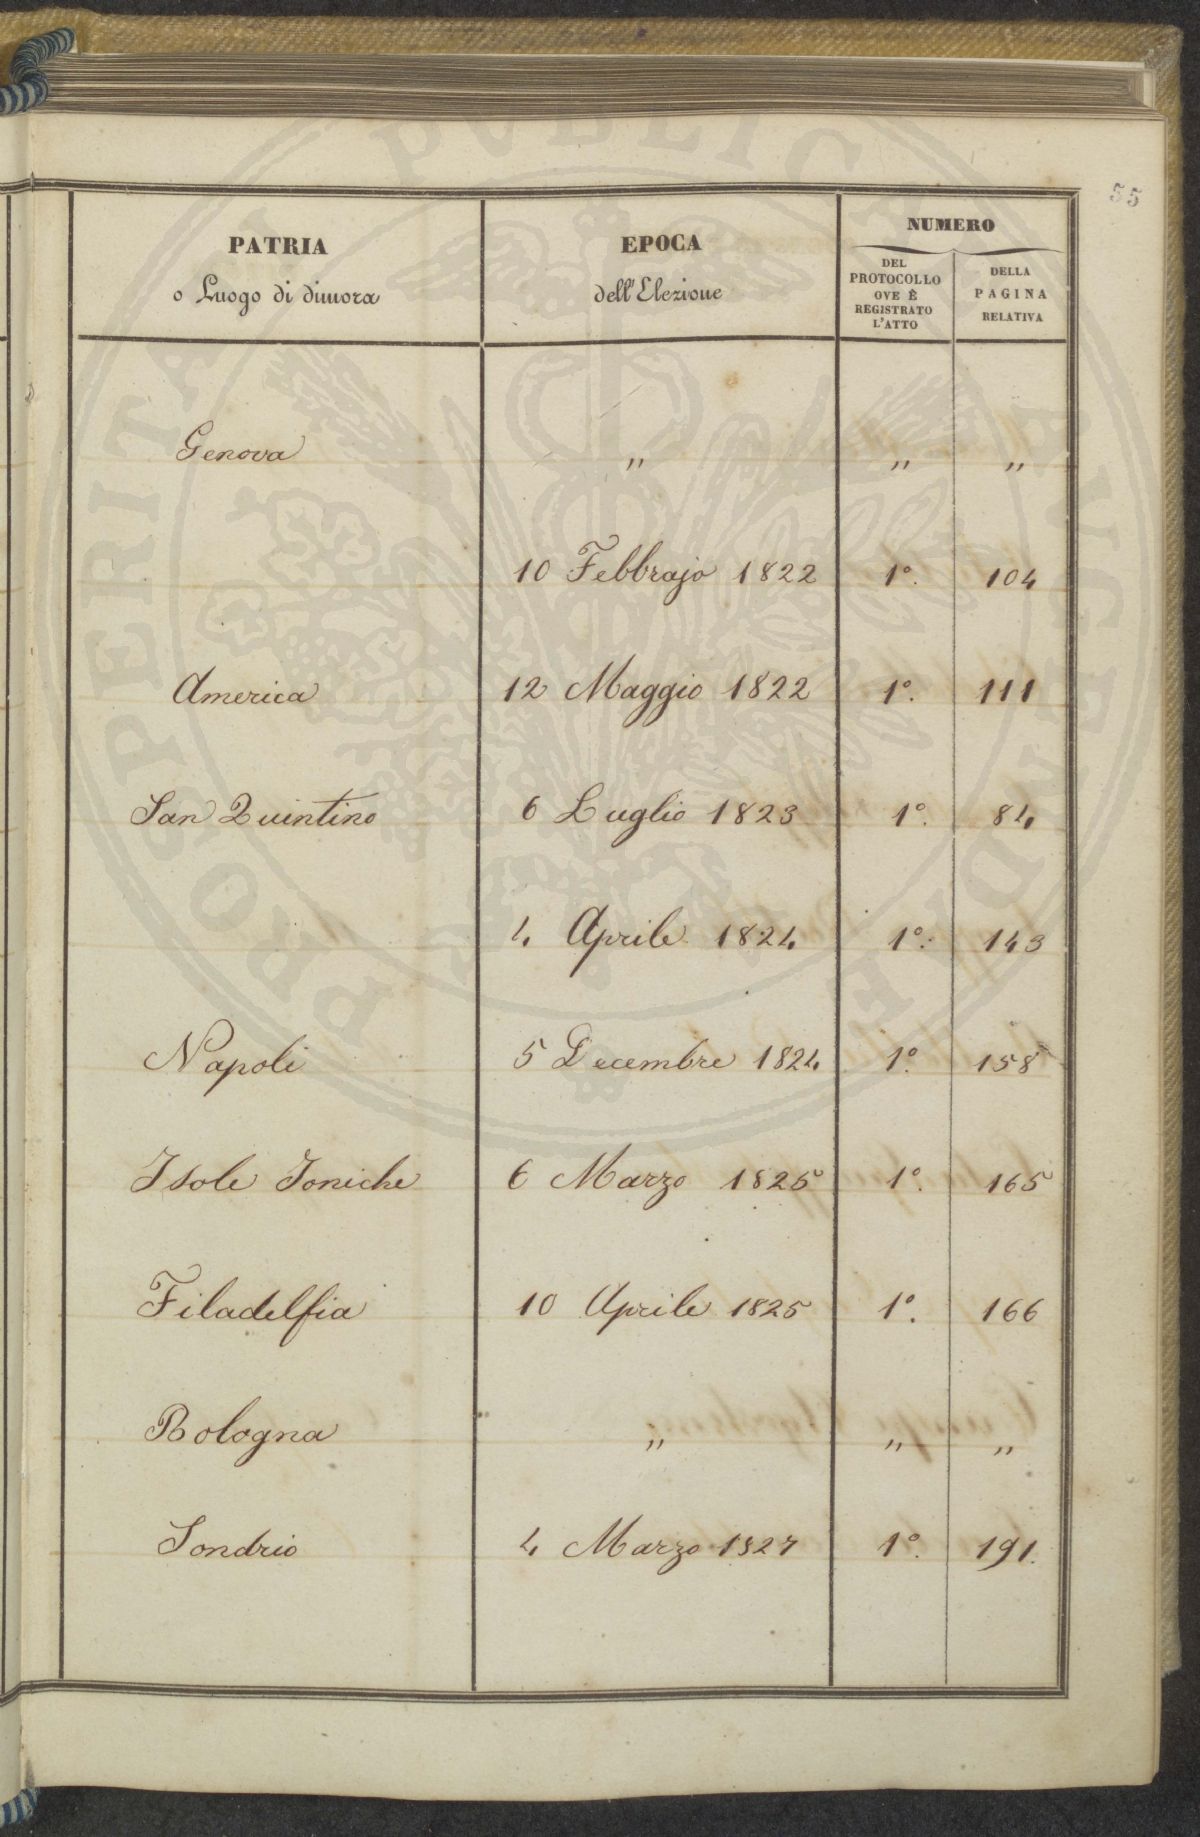 55
PATRIA
o Luogo di dimora
EPOCA
dell'Elezione
NUMERO
DEL
PROTOCOLLO
OVE È
REGISTRATO
L'ATTO
DELLA
PAGINA
RELATIVA
Genova " " "
10 Febbrajo 1822 1º. 104
America 12 Maggio 1822 1º. 111
San Quintino 6 Luglio 1823 1º. 84
4 Aprile 1824 1º. 143
Napoli 5 Decembre 1824 1º. 158
Isole Joniche 6 Marzo 1825 1º. 165
Filadelfia 10 Aprile 1825 1º. 166
Bologna " " "
Sondrio 4 Marzo 1827 1º. 191.
PROSPERITATI PVBLICAE AVGENDAE